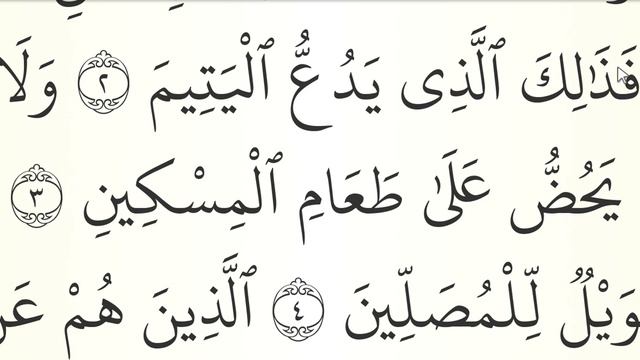 فَذَٰلِكَ ٱلَّذِى يَدُعُّ ٱلْيَتِيمَ ٢ وَلَا
يَحُضُّ عَلَىٰ طَعَامِ ٱلْمِسْكِينِ ٣
وَيْلٌ لِّلْمُصَلِّينَ ٤ ٱلَّذِينَ هُمْ عَن